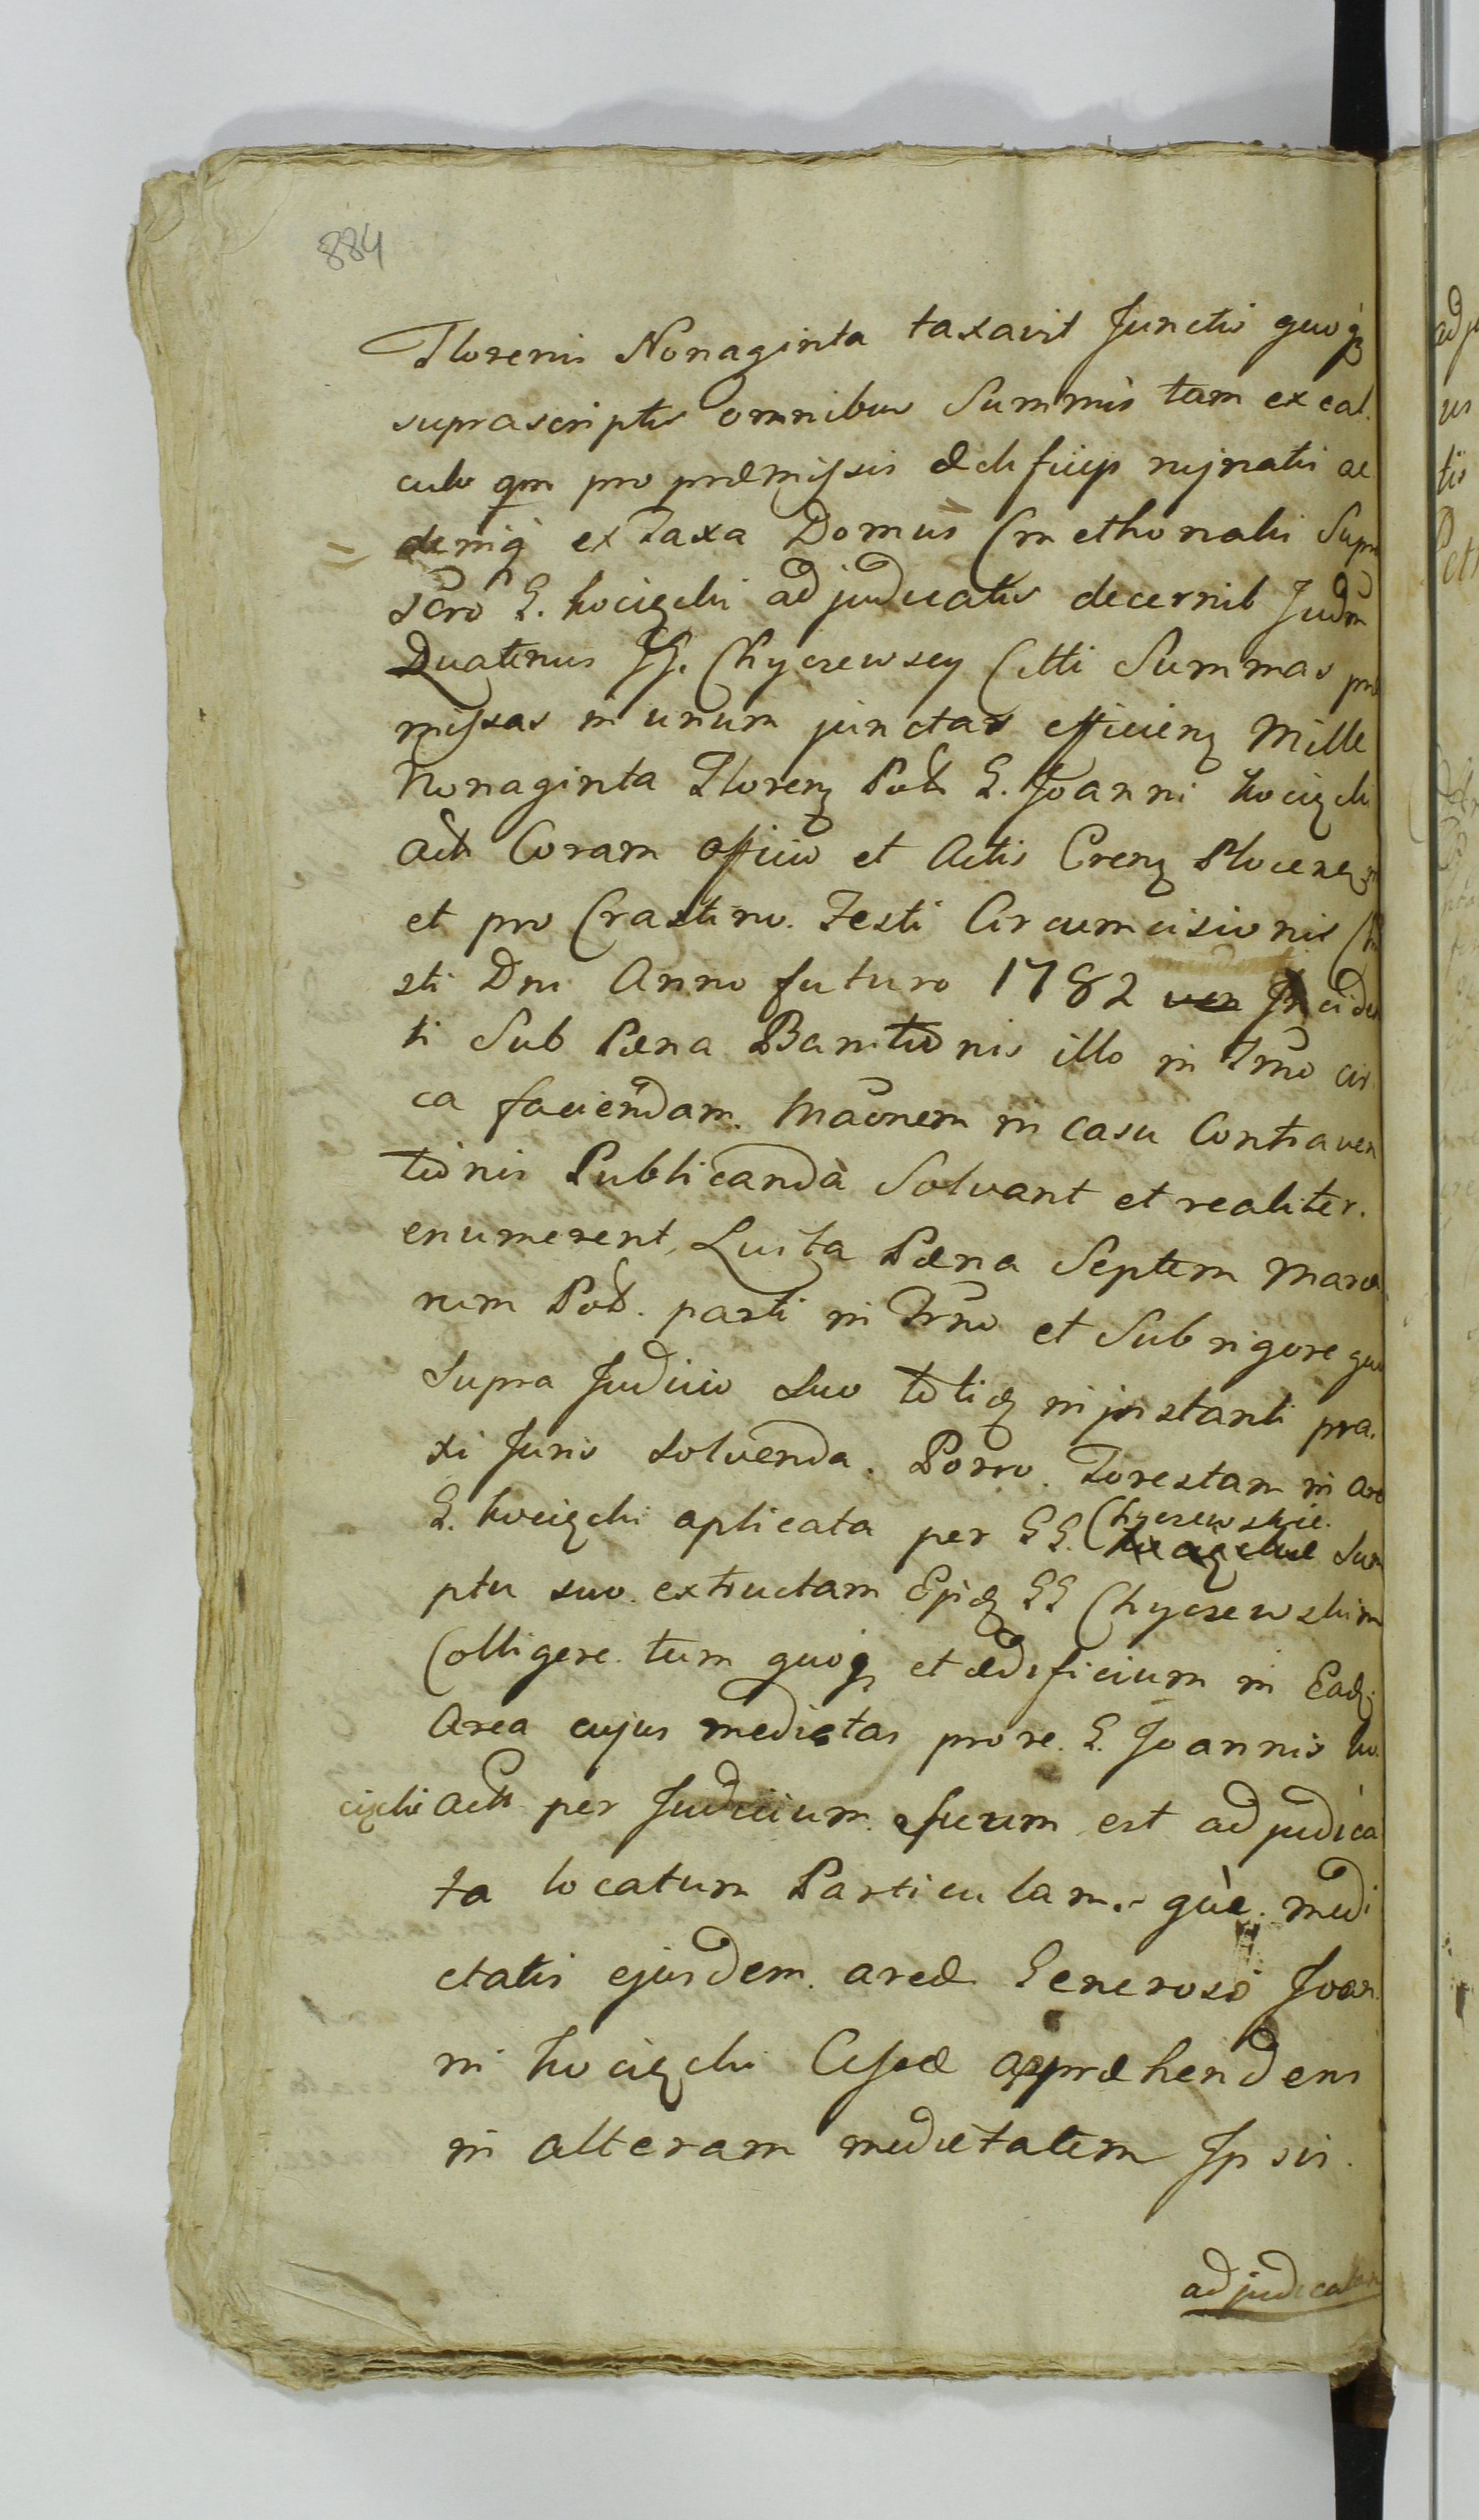 884
Florenis Nonaginta taxavit Junctis quoq
suprascriptis omnibus Summis tam ex cal.
culo qm pro præmissis ædificijs rujnatis ac
deniq ex Taxa Domus Cmethonalis Supra
scro G. Kocięcki adjudicatis decernit Judm
Quatenus GG. Chyczewscy Citti Summas præ
missas in unum junctas efficienz Mille
Nonaginta Florenz Pol G. Joanni Kocięcki
Act Coram officio et Actis Crenz Plocenz
et pro Crastino. Festi Circumcisionis Chri
sti Dni Anno futuro 1782 Inciden
ti Sub Pæna Banitionis illo in Trno cir
ca faciendam. Maonem in casu Contraven
tionis Publicanda Solvant et realiter.
enumerent, Luita Pæna Septem Marca
rum Pol. parti in Trno et Sub rigore quo
Supra Judicio Suo totidz in jnstanti pra.
xi Juris solvenda. Porro. Forestam in Area
G. Kocięcki aplicata per GG. Chyczewskie. Sum
ptu suo. extructam Ejsdz GG Chyczewskim
Colligere. tum quoq et ædificium in Eadz
Area cujus medietas pro re. G. Joannis Ko.
cięcki Act per Judicium suum est adjudica
ta locatum Particulam. que. medi
etatis ejusdem. areæ Generoso Joan
ni Kocięcki Cessæ appræhendens
in alteram medietatem Ipsis.
adjudicatam